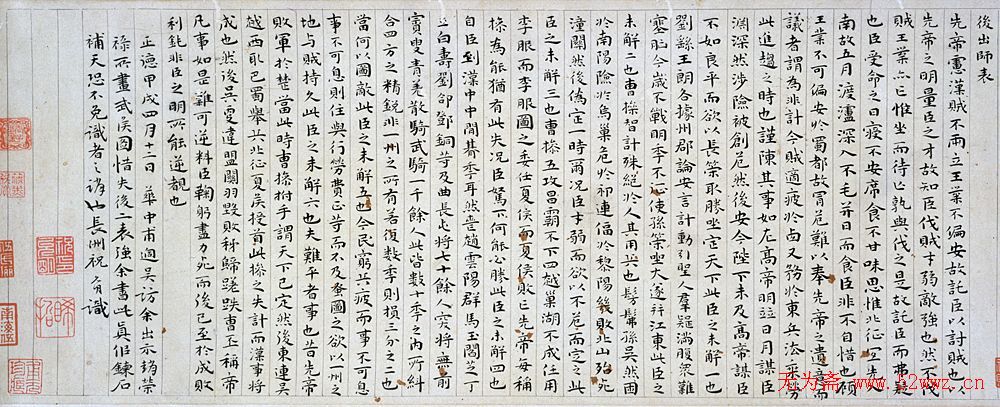 後出師表
先帝慮漢賊不兩立王業不偏安故託臣以討賊也以
先帝之明量臣之才故知臣伐賊才弱敵強也然不伐
賊王業亦亡惟坐而待亡孰與伐之是故託臣而弗疑
也臣受命之日寢不安席食不甘味思惟北征宜先入
南故五月渡瀘深入不毛并日而食臣非不自惜也顧
王業不可偏安於蜀都故冒危難以奉先帝之遺意而
議者謂為非計今賊適疲於西又務於東兵法乘勞
此進趨之時也謹陳其事如左高帝明並日月謀臣
淵深然涉險被創危然後安今陛下未及高帝謀臣
不如良平而欲以長策取勝坐定天下此臣之未解一也
劉繇王朗各據州郡論安言計動引聖人羣疑滿腹衆難
塞胸今歲不戰明年不征使孫策坐大遂并江東此臣之
未解二也曹操智計殊絕於人其用兵也髣髴孫吳然困
於南陽險於烏巢危於祁連偪於黎陽幾敗北山殆死
潼關然後偽定一時爾況臣才弱而欲以不危而定之此
臣之未解三也曹操五攻昌霸不下四越巢湖不成任用
李服而李服圖之委任夏侯而夏侯敗亡先帝每稱
操為能猶有此失況臣駑下何能必勝此臣之未解四也
自臣到漢中中間朞年耳然喪趙雲陽群馬玉閻芝丁
立白壽劉郃鄧銅等及曲長屯將七十餘人突將無前
賨叟青羌散騎武騎一千餘人此皆數十年之內所糾
合四方之精銳非一州之所有若復數年則損三分之二也
當何以圖敵此臣之未解五也今民窮兵疲而事不可息
事不可息則住與行勞費正等而不及蚤圖之欲以一州之
地与賊持久此臣之未解六也夫難平者事也昔先帝
敗軍於楚當此時曹操拊手謂天下已定然後東連吳
越西取巴蜀舉兵北征夏侯授首此操之失計而漢事將
成也然後吳更違盟關羽毀敗秭歸蹉跌曹丕稱帝
凡事如是難可逆料臣鞠躬盡力死而後已至於成敗
利鈍非臣之明所能逆覩也
正德甲戌四月十三日 華中甫過吳訪余出示趙榮
祿所畫武侯圖惜失後二表強余書此真佀鍊石
補天恐不免識者之誚也長州祝 識
天为斋 www.52wwz.cn